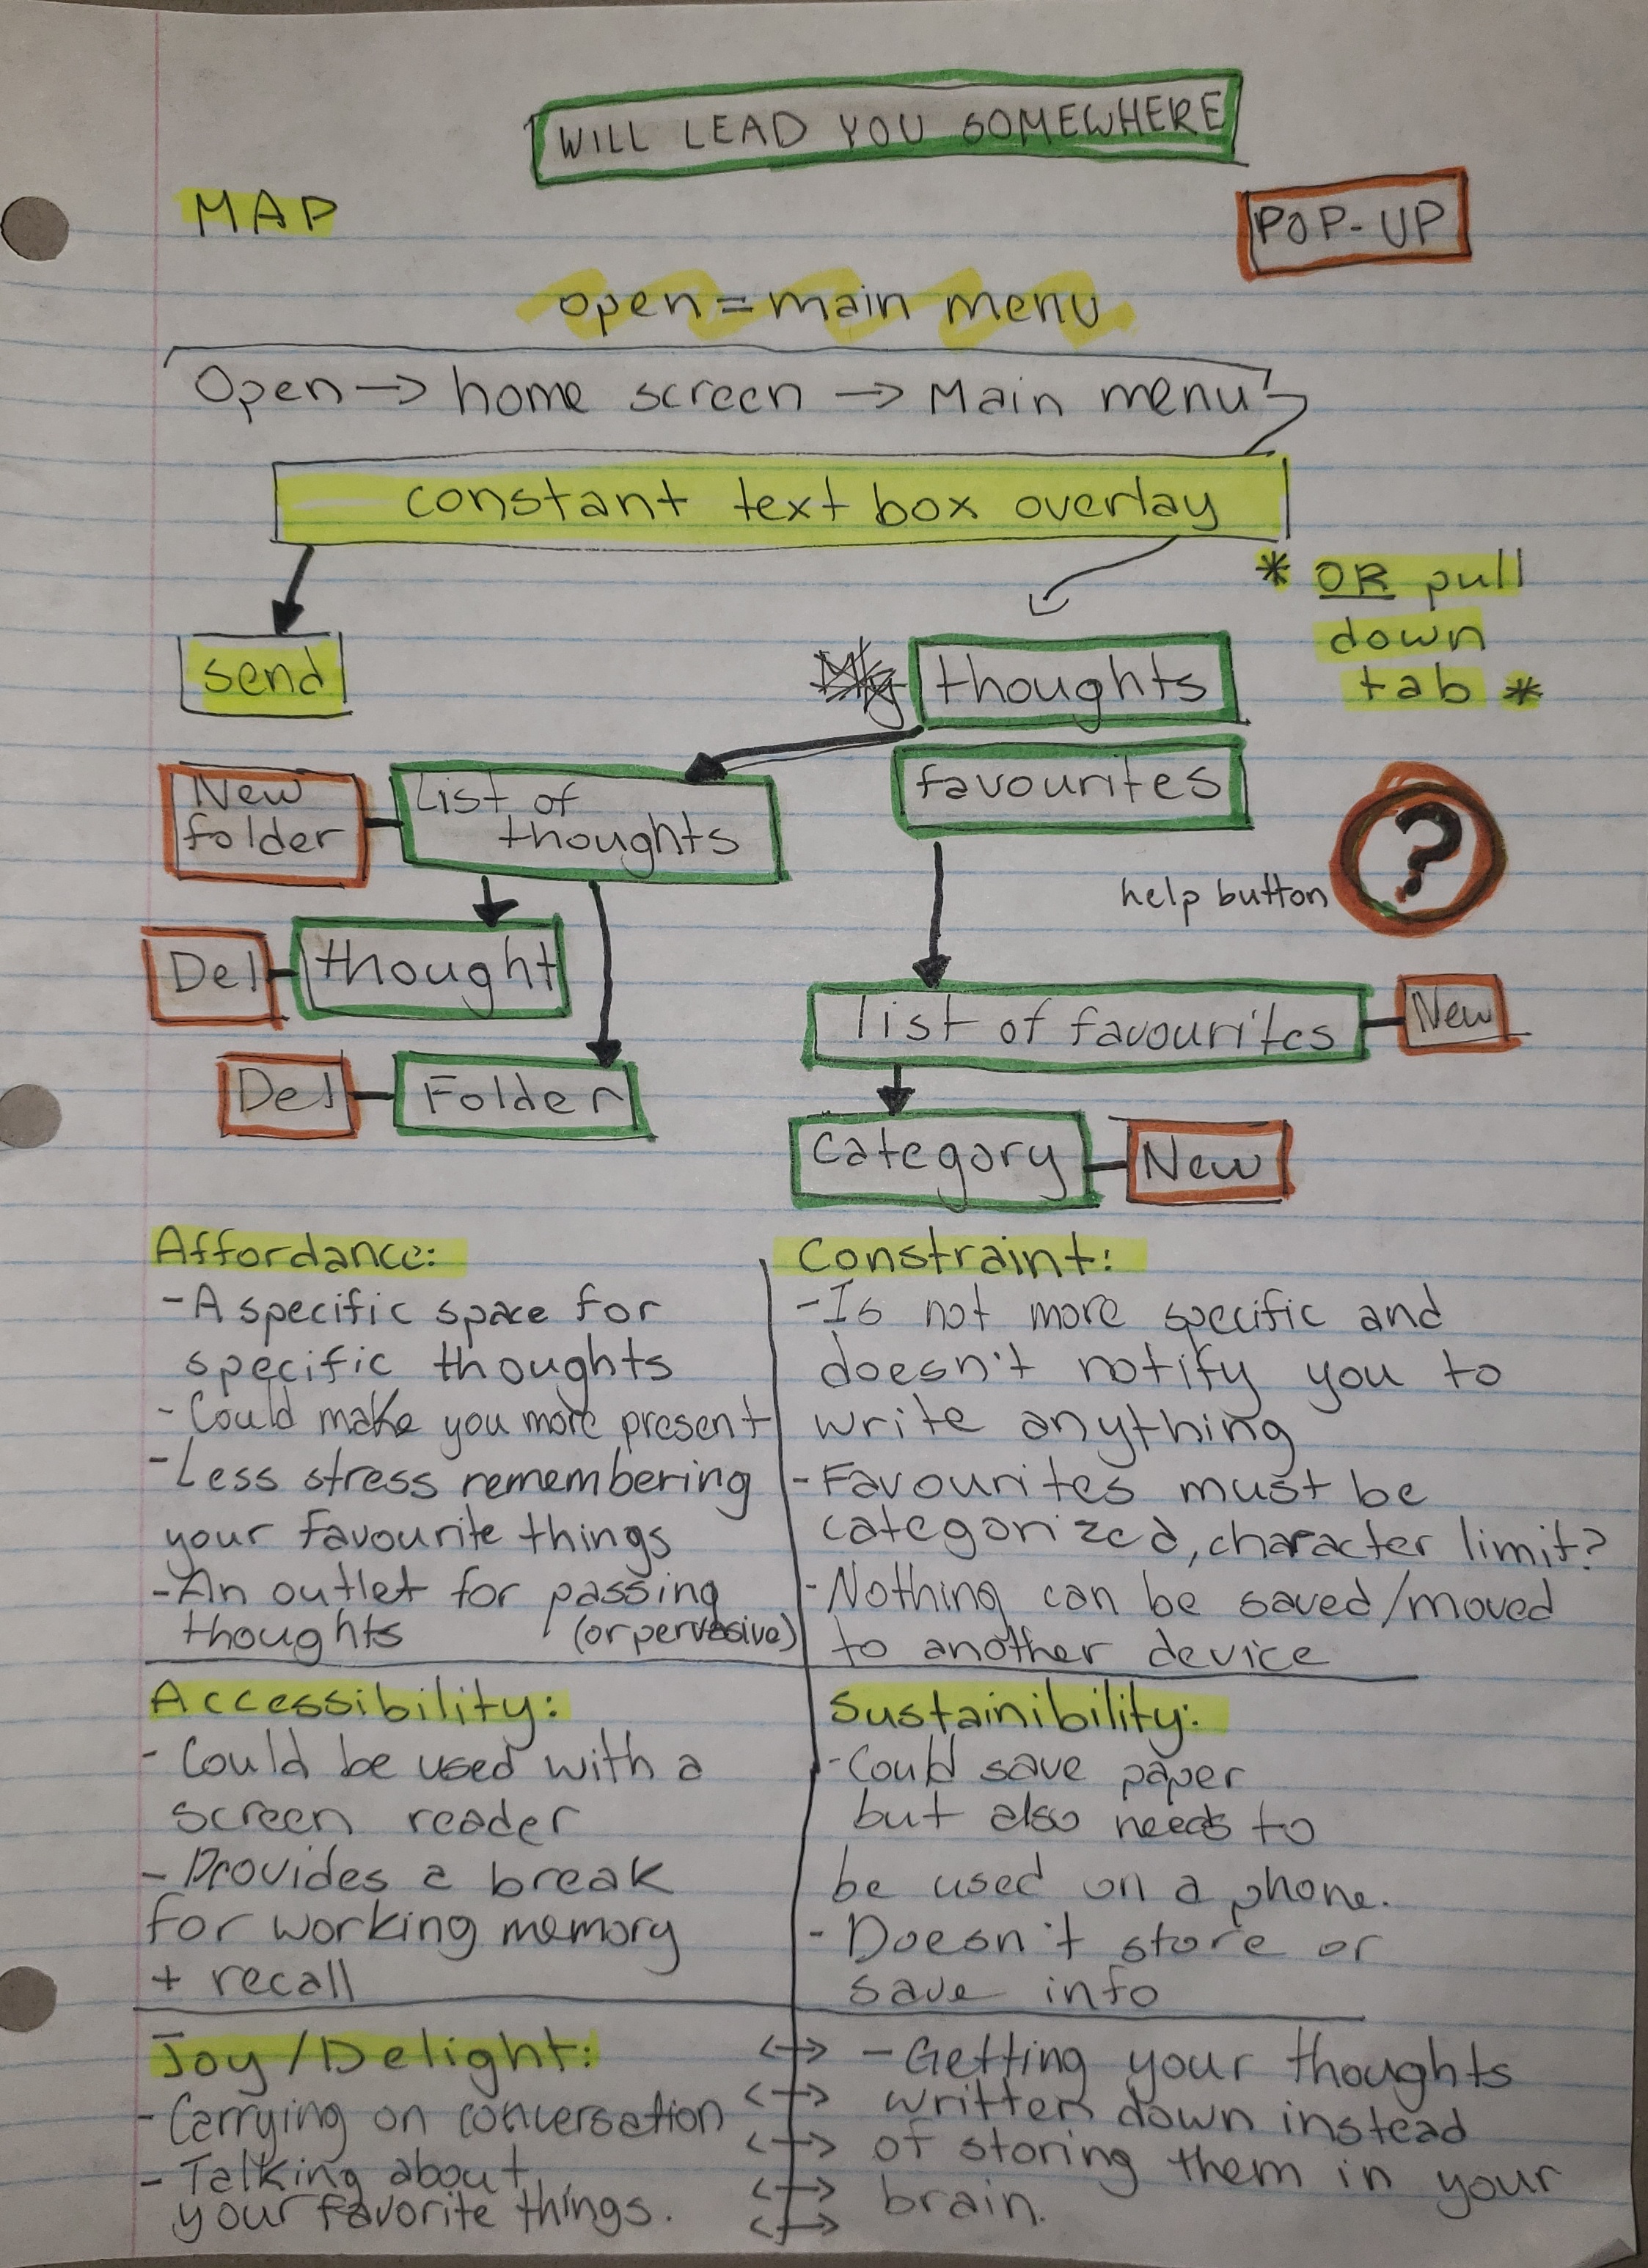 WILL LEAD YOU SOMEWHERE
MAP
POP-UP
open = main menu
Open → home screen → Main menu
constant text box overlay
* OR pull
down
tab *
send
thoughts
favourites
New
folder
List of
thoughts
?
help button
Del
thought
list of favourites
New
Del
Folder
category
New
Affordance:
- A specific space for
specific thoughts
- Could make you more present
- Less stress remembering
your favourite things
- An outlet for passing
thoughts (or pervasive)
Constraint:
- Is not more specific and
doesn't notify you to
write anything
- Favourites must be
categorized, character limit?
- Nothing can be saved/moved
to another device
Accessibility:
- Could be used with a
screen reader
- Provides a break
for working memory
+ recall
Sustainibility:
- Could save paper
but also needs to
be used on a phone.
- Doesn't store or
save info
Joy/Delight:
- Carrying on conversation
- Talking about
your favorite things.
- Getting your thoughts
written down instead
of storing them in your
brain.